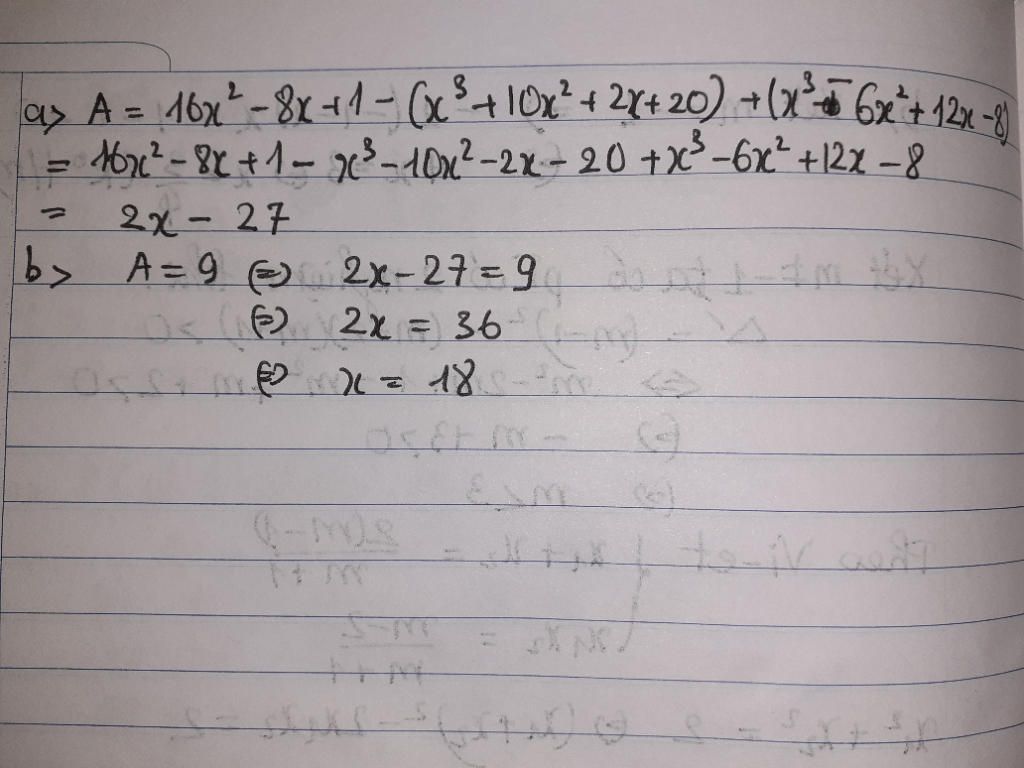 a> A = 16x² - 8x + 1 - (x³ + 10x² + 2x + 20) + (x³ - 6x² + 12x - 8)
= 16x² - 8x + 1 - x³ - 10x² - 2x - 20 + x³ - 6x² + 12x - 8
= 2x - 27
b> A = 9 ⇔ 2x - 27 = 9
⇔ 2x = 36
⇔ x = 18